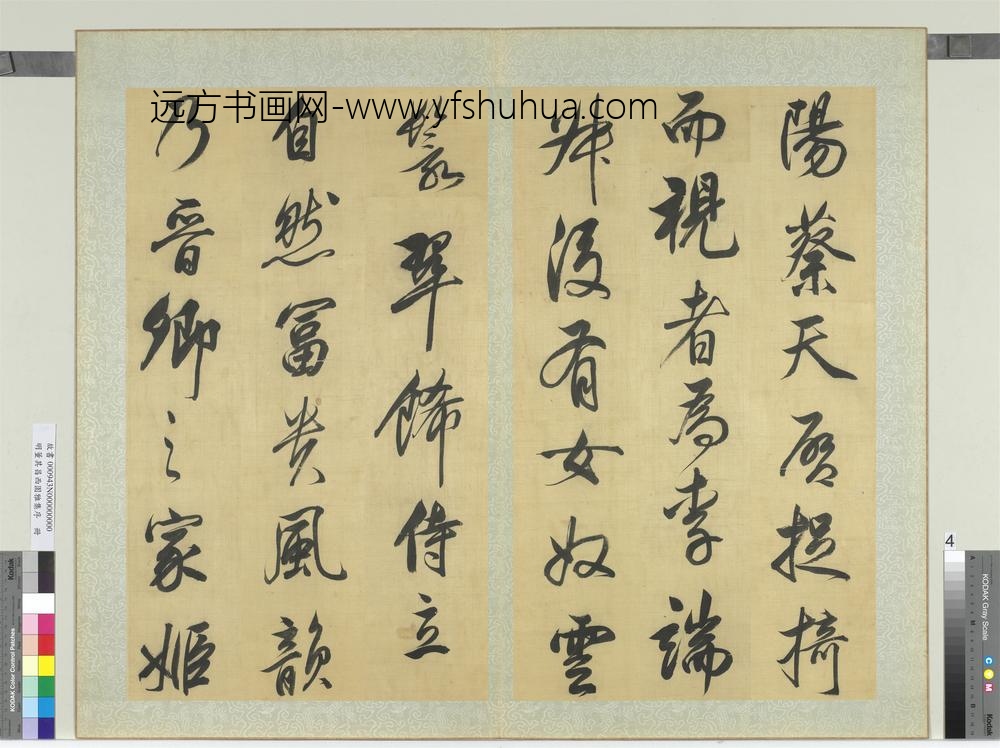 远方书画网-www.yfshuhua.com
陽蔡天啓捉掎
而視者為李端
叔後有女奴雲
鬟翠飾侍立
自然富貴風韻
乃晉卿之家姬
故書 000943N000000000
明董其昌西園雅集序 冊
4
Kodak
KODAK Color Control Patches
KODAK Gray Scale
C
Y
M
Kodak
A
M
B